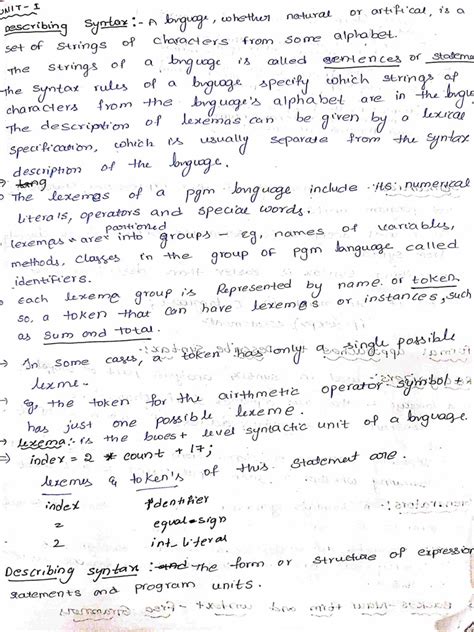 UNIT-I
Describing Syntax:- A language, whether natural or artificial, is a
set of strings of characters from some alphabet.
The strings of a language is called sentences or stateme
the syntax rules of a language specify which strings of
characters from the language's alphabet are in the langue
The description of lexemes can be given by a lexical
specification, which is usually separate from the syntax
description of the language.
→ tang
The lexemes of a pgm language include its numerical
literals, operators and special words.
partitioned
lexemes are into groups - eg, names of variables,
methods, classes in the group of pgm language called
identifiers.
Each lexeme group is Represented by name. or token.
so, a token that can have lexemes or instances, such
as sum and total.
→ In some cases, a token has only a single possible
lexme.
→ eg, the token for the airthmetic operator symbol +
has just one possible lexeme.
→ lexema:- is the lowest level syntactic unit of a language.
⇒ index = 2 * count + 17;
lexemes & token's of this statement are.
index Identifier
= equal-sign
2 int_literal
Describing syntax :- the form or structure of expression
statements and program units.